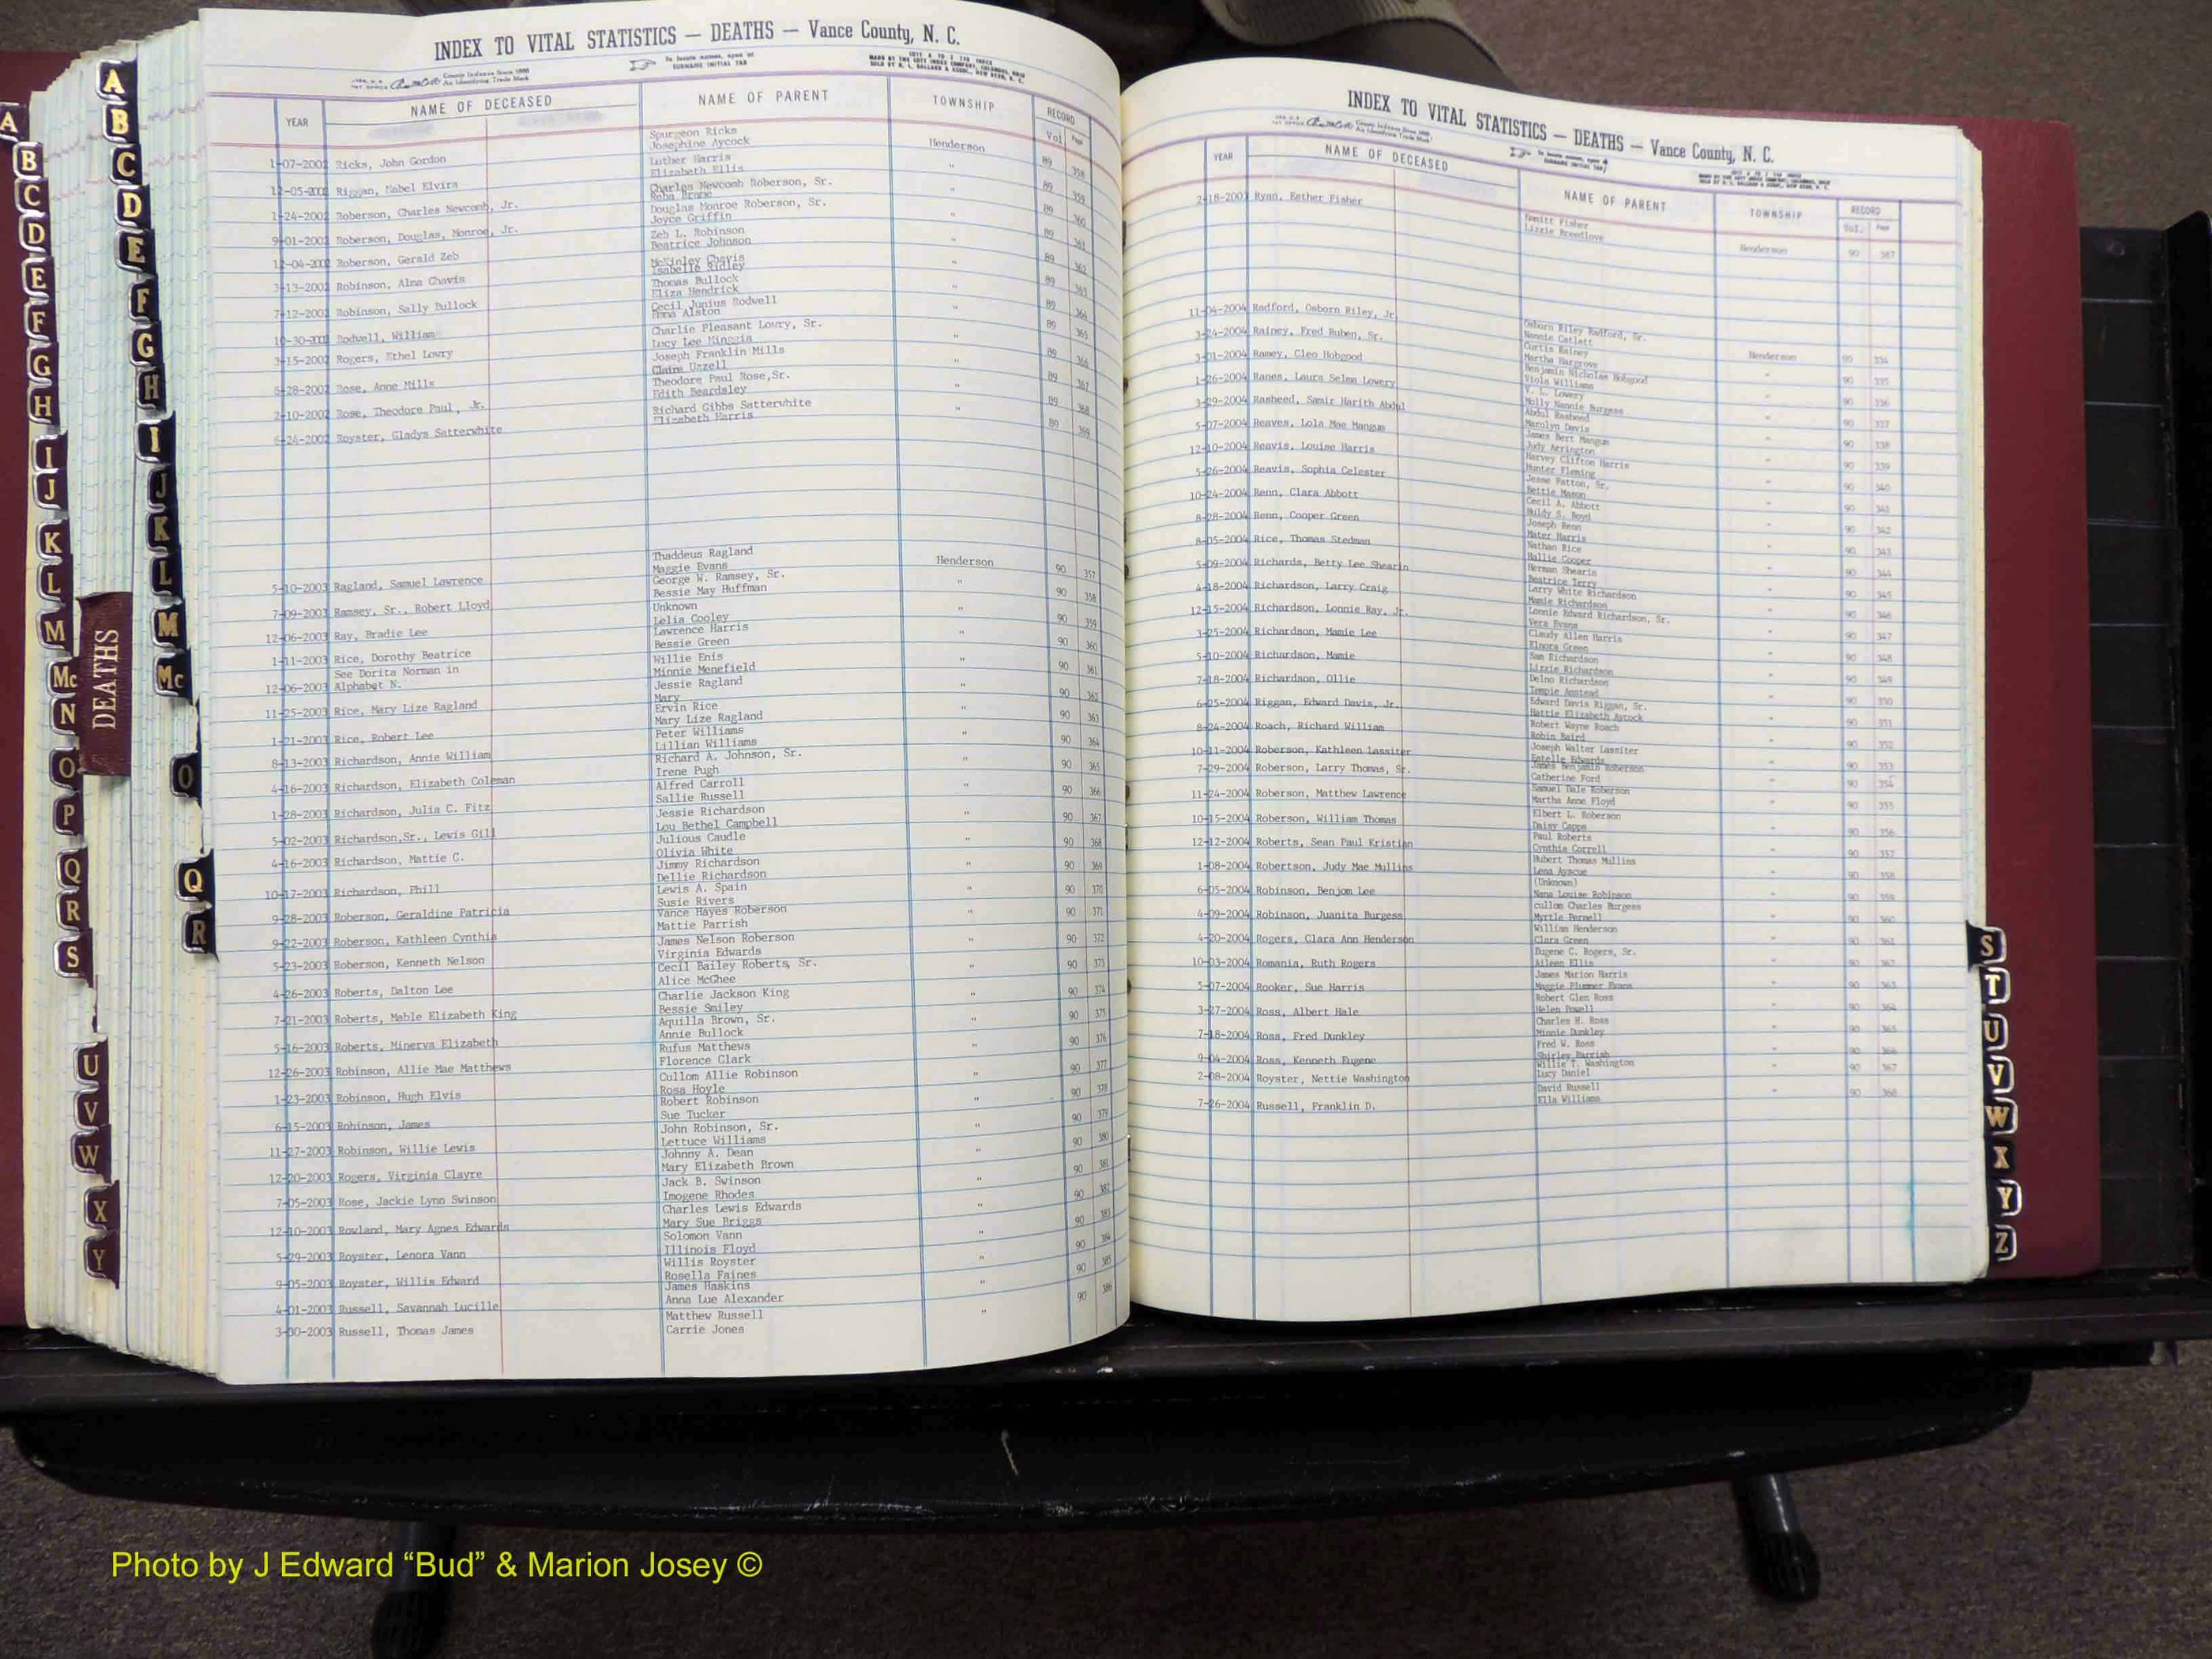 INDEX TO VITAL STATISTICS — DEATHS — Vance County, N. C.
County Indexes Since 1888
An Identifying Trade Mark
To locate names, open at
SURNAME INITIAL TAB
YEAR NAME OF DECEASED NAME OF PARENT TOWNSHIP RECORD
Vol. Page
Spurgeon Ricks
1-07-2002 Ricks, John Gordon Josephine Aycock Henderson 89 358
Luther Harris
12-05-2002 Riggan, Mabel Elvira Elizabeth Ellis " 89 359
Charles Newcomb Roberson, Sr.
1-24-2002 Roberson, Charles Newcomb, Jr. " 89 360
Douglas Monroe Roberson, Sr.
9-01-2002 Roberson, Douglas, Monroe, Jr. Joyce Griffin " 89 361
Zeb L. Robinson
12-04-2002 Roberson, Gerald Zeb Beatrice Johnson " 89 362
McKinley Chavis
3-13-2002 Robinson, Alma Chavis Isabelle Ridley " 89 363
Thomas Bullock
7-12-2002 Robinson, Sally Bullock Eliza Hendrick " 89 364
Cecil Junius Rodwell
10-30-2002 Rodwell, William Alston " 89 365
Charlie Pleasant Lowry, Sr.
3-15-2002 Rogers, Ethel Lowry Lucy Lee " 89 366
Joseph Franklin Mills
6-28-2002 Rose, Anne Mills Claire Uzzell " 89 367
Theodore Paul Rose,Sr.
2-10-2002 Rose, Theodore Paul, Jr. Edith Beardsley " 89 368
Richard Gibbs Satterwhite
6-24-2002 Royster, Gladys Satterwhite Elizabeth Harris " 89 369
Thaddeus Ragland
5-10-2003 Ragland, Samuel Lawrence Maggie Evans Henderson 90 357
George W. Ramsey, Sr.
7-09-2003 Ramsey, Sr., Robert Lloyd Bessie May Huffman " 90 358
Unknown
12-06-2003 Ray, Bradie Lee Lelia Cooley " 90 359
Lawrence Harris
1-11-2003 Rice, Dorothy Beatrice Bessie Green " 90 360
See Dorita Norman in Willie Enis
12-06-2003 Alphabet N. Minnie Menefield " 90 361
Jessie Ragland
11-25-2003 Rice, Mary Lize Ragland Mary " 90 362
Ervin Rice
1-21-2003 Rice, Robert Lee Mary Lize Ragland " 90 363
Peter Williams
8-13-2003 Richardson, Annie William Lillian Williams " 90 364
Richard A. Johnson, Sr.
4-16-2003 Richardson, Elizabeth Coleman Irene Pugh " 90 365
Alfred Carroll
1-28-2003 Richardson, Julia C. Fitz Sallie Russell " 90 366
Jessie Richardson
5-02-2003 Richardson,Sr., Lewis Gill Lou Bethel Campbell " 90 367
Julious Caudle
4-16-2003 Richardson, Mattie C. Olivia White " 90 368
Jimmy Richardson
10-17-2003 Richardson, Phill Dellie Richardson " 90 369
Lewis A. Spain
9-28-2003 Roberson, Geraldine Patricia Susie Rivers " 90 370
Vance Hayes Roberson
9-22-2003 Roberson, Kathleen Cynthia Mattie Parrish " 90 371
James Nelson Roberson
5-23-2003 Roberson, Kenneth Nelson Virginia Edwards " 90 372
Cecil Bailey Roberts, Sr.
4-26-2003 Roberts, Dalton Lee Alice McGhee " 90 373
Charlie Jackson King
7-21-2003 Roberts, Mable Elizabeth King Bessie Smiley " 90 374
Aquilla Brown, Sr.
5-16-2003 Roberts, Minerva Elizabeth Annie Bullock " 90 375
Rufus Matthews
12-26-2003 Robinson, Allie Mae Matthews Florence Clark " 90 376
Cullom Allie Robinson
1-23-2003 Robinson, Hugh Elvis Rosa Hoyle " 90 377
Robert Robinson
6-15-2003 Robinson, James Sue Tucker " 90 378
John Robinson, Sr.
11-27-2003 Robinson, Willie Lewis Lettuce Williams " 90 379
Johnny A. Dean
12-20-2003 Rogers, Virginia Clayre Mary Elizabeth Brown " 90 380
Jack B. Swinson
7-05-2003 Rose, Jackie Lynn Swinson Imogene Rhodes " 90 381
Charles Lewis Edwards
12-10-2003 Rowland, Mary Agnes Edwards Mary Sue Briggs " 90 382
Solomon Vann
5-29-2003 Royster, Lenora Vann Illinois Floyd " 90 383
Willis Royster
9-05-2003 Royster, Willis Edward Rosella Faines " 90 384
James Haskins
4-01-2003 Russell, Savannah Lucille Anna Lue Alexander " 90 385
Matthew Russell
3-30-2003 Russell, Thomas James Carrie Jones " 90 386
INDEX TO VITAL STATISTICS — DEATHS — Vance County, N. C.
YEAR NAME OF DECEASED NAME OF PARENT TOWNSHIP RECORD
Vol. Page
Fisher
2-18-2003 Ryan, Esther Fisher Lizzie Breedlove Henderson 90 387
Osborn Riley Radford, Sr.
11-04-2004 Radford, Osborn Riley, Jr. Nannie Catlett Henderson 90 334
Curtis Rainey
3-24-2004 Rainey, Fred Ruben, Sr. Martha Hargrove " 90 335
Benjamin Nicholas Hobgood
3-01-2004 Ramey, Cleo Hobgood Viola Williams " 90 336
V. L. Lowery
1-26-2004 Ranes, Laura Selma Lowery Molly Nannie Burgess " 90 337
Abdul Rasheed
3-29-2004 Rasheed, Samir Harith Abdul Marolyn Davis " 90 338
James Bert Mangum
5-07-2004 Reaves, Lola Mae Mangum Judy Arrington " 90 339
Harvey Clifton Harris
12-10-2004 Reavis, Louise Harris Hunter Fleming " 90 340
Jesse Patton, Sr.
5-26-2004 Reavis, Sophia Celester Bettie Mason " 90 341
Cecil A. Abbott
10-24-2004 Renn, Clara Abbott Huldy S. Boyd " 90 342
Joseph Renn
8-28-2004 Renn, Cooper Green Mater Harris " 90 343
Nathan Rice
8-05-2004 Rice, Thomas Stedman Hallie Cooper " 90 344
Herman Shearin
5-09-2004 Richards, Betty Lee Shearin Beatrice Terry " 90 345
Larry White Richardson
4-18-2004 Richardson, Larry Craig Mamie Richardson " 90 346
Lonnie Edward Richardson, Sr.
12-15-2004 Richardson, Lonnie Ray, Jr. Vera Evans " 90 347
Claudy Allen Harris
3-25-2004 Richardson, Mamie Lee Elnora Green " 90 348
Sam Richardson
5-10-2004 Richardson, Mamie Lizzie Richardson " 90 349
Delno Richardson
7-18-2004 Richardson, Ollie Tempie Anstead " 90 350
Edward Davis Riggan, Sr.
6-25-2004 Riggan, Edward Davis, Jr. Hattie Elizabeth Aycock " 90 351
Robert Wayne Roach
8-24-2004 Roach, Richard William Robin Baird " 90 352
Joseph Walter Lassiter
10-11-2004 Roberson, Kathleen Lassiter Estelle Edwards " 90 353
James Benjamin Roberson
7-29-2004 Roberson, Larry Thomas, Sr. Catherine Ford " 90 354
Samuel Dale Roberson
11-24-2004 Roberson, Matthew Lawrence Martha Anne Floyd " 90 355
Elbert L. Roberson
10-15-2004 Roberson, William Thomas Daisy Capps " 90 356
Paul Roberts
12-12-2004 Roberts, Sean Paul Kristian Cynthia Correll " 90 357
Hubert Thomas Mullins
1-08-2004 Robertson, Judy Mae Mullins Lena Ayscue " 90 358
(Unknown)
6-05-2004 Robinson, Benjom Lee Nana Louise Robinson " 90 359
cullom Charles Burgess
4-09-2004 Robinson, Juanita Burgess Myrtle Pernell " 90 360
William Henderson
4-20-2004 Rogers, Clara Ann Henderson Clara Green " 90 361
Eugene C. Rogers, Sr.
10-03-2004 Romania, Ruth Rogers Aileen Ellis " 90 362
James Marion Harris
5-07-2004 Rooker, Sue Harris Maggie Plummer Evans " 90 363
Robert Glen Ross
3-27-2004 Ross, Albert Hale Helen Powell " 90 364
Charles H. Ross
7-18-2004 Ross, Fred Dunkley Minnie Dunkley " 90 365
Fred W. Ross
9-04-2004 Ross, Kenneth Eugene Shirley Parrish " 90 366
Willie T. Washington
2-08-2004 Royster, Nettie Washington Lucy Daniel " 90 367
David Russell
7-26-2004 Russell, Franklin D. Ella Williams " 90 368
A
B
C
D
E
F
G
H
I
J
K
L
M
Mc
N
O
P
Q
R
S
U
V
W
X
Y
DEATHS
A
B
C
D
E
F
G
H
I
J
K
L
M
Mc
O
Q
R
S
T
U
V
W
X
Y
Z
Photo by J Edward “Bud” & Marion Josey ©